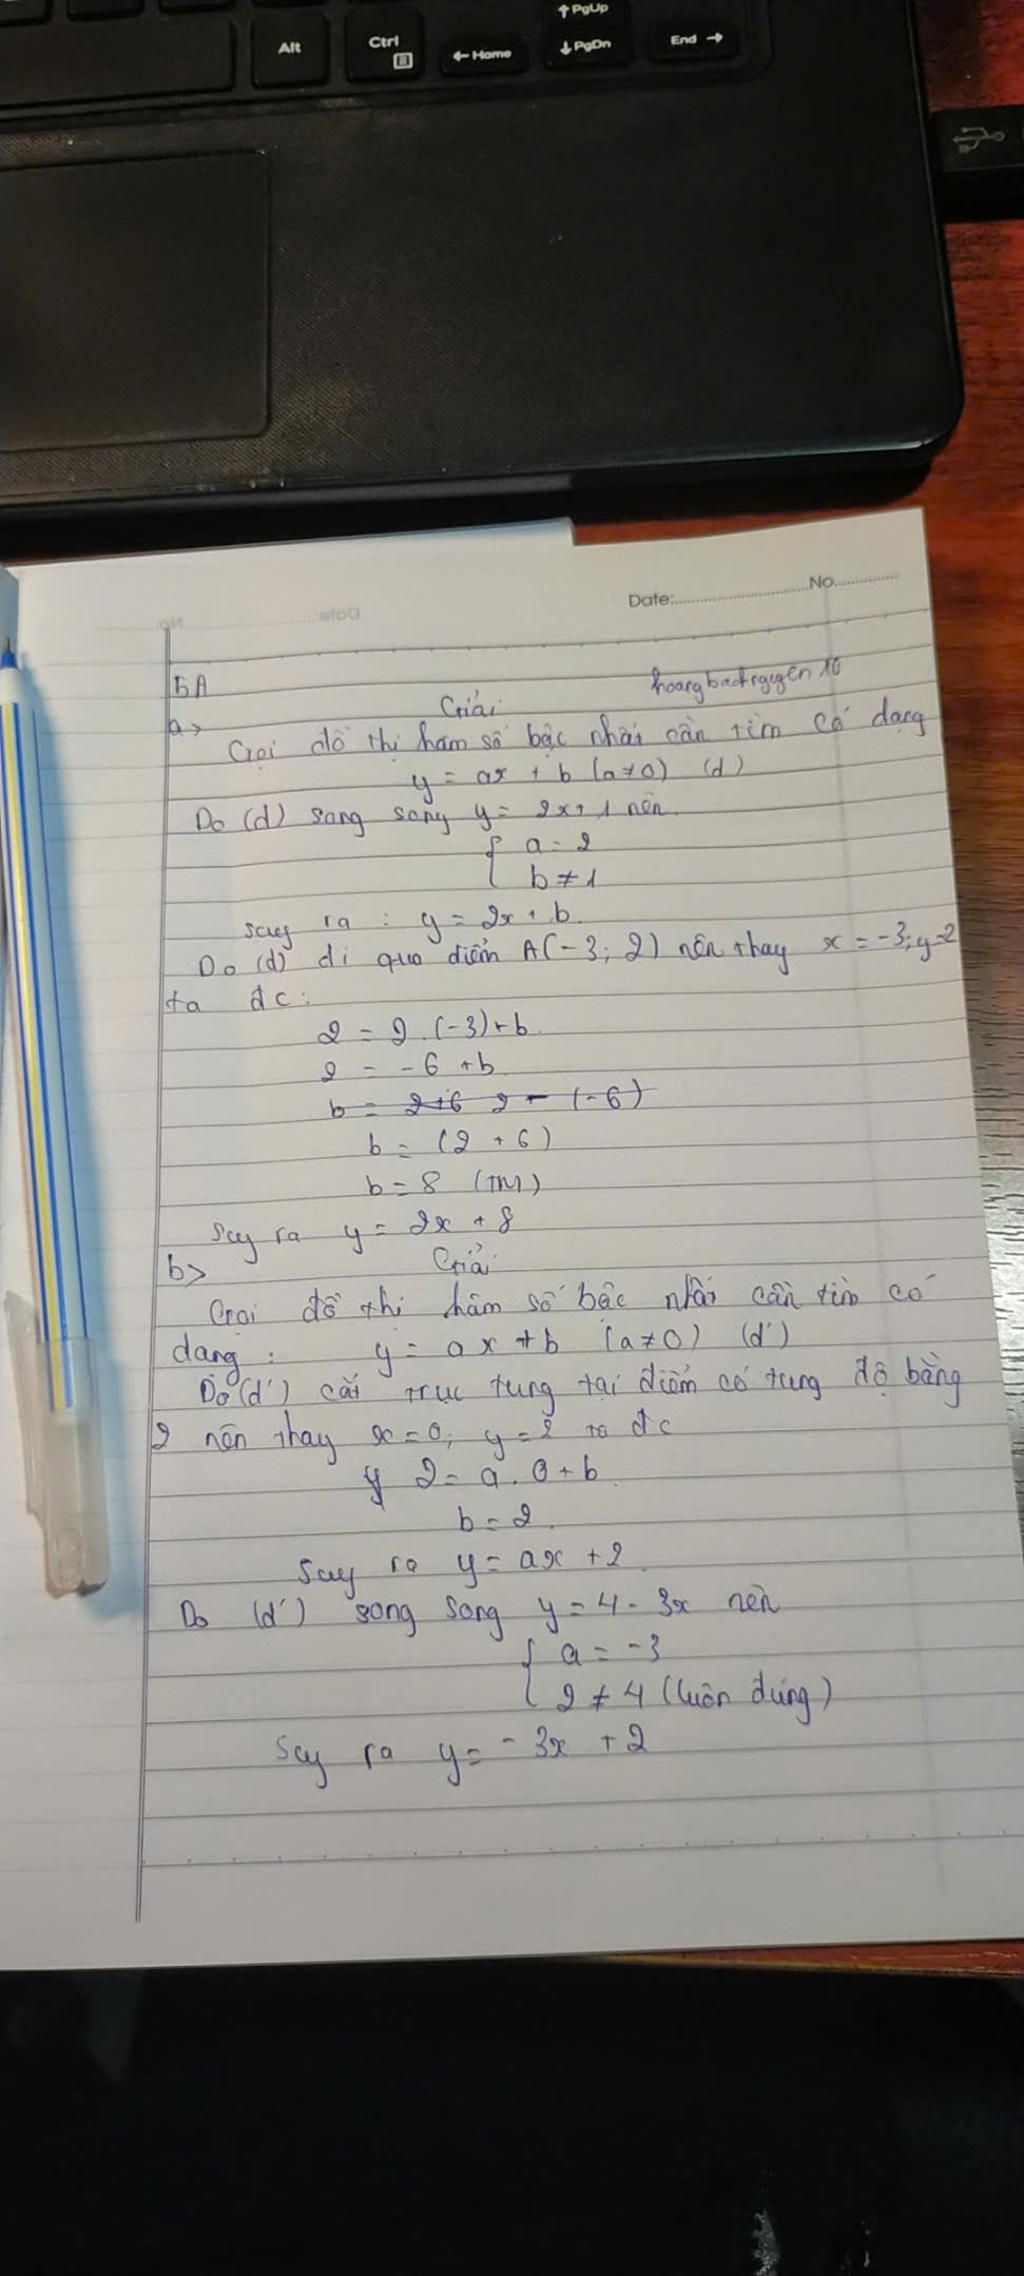 ↑PgUp
Alt
Ctrl
←Home
↓PgDn
End →
Date: No
5A
hoangbachnguyen 10
Giải
a>
Gọi đồ thị hàm số bậc nhất cần tìm có dạng
y = ax + b (a≠0) (d)
Do (d) song song y = 2x+1 nên
{ a = 2
b ≠ 1
suy ra : y = 2x + b
Do (d) đi qua điểm A(-3; 2) nên thay x = -3; y=2
ta đc:
2 = 2.(-3)+b
2 = -6 +b
b = 2+6 2 - (-6)
b = (2 + 6)
b = 8 (TM)
Suy ra y = 2x + 8
b>
Giải
Gọi đồ thị hàm số bậc nhất cần tìm có
dạng : y = ax + b (a≠0) (d')
Do (d') cắt trục tung tại điểm có tung độ bằng
2 nên thay x=0; y=2 ta đc
y 2 = a.0+b
b = 2
Suy ra y = ax +2
Do (d') song song y = 4 - 3x nên
{ a = -3
2 ≠ 4 (luôn đúng)
Suy ra y = -3x +2